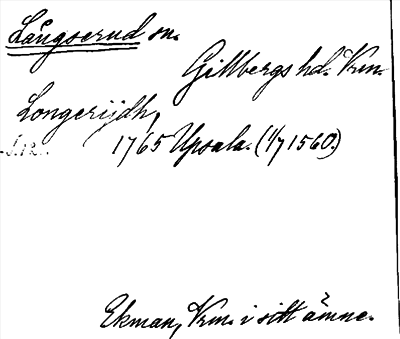 Långserud sn.
Gillbergs hd. Vrm.
Longerijdh,
1765 Upsala. (11/7 1560.)
Ekman, Vrm. i sitt ämne.